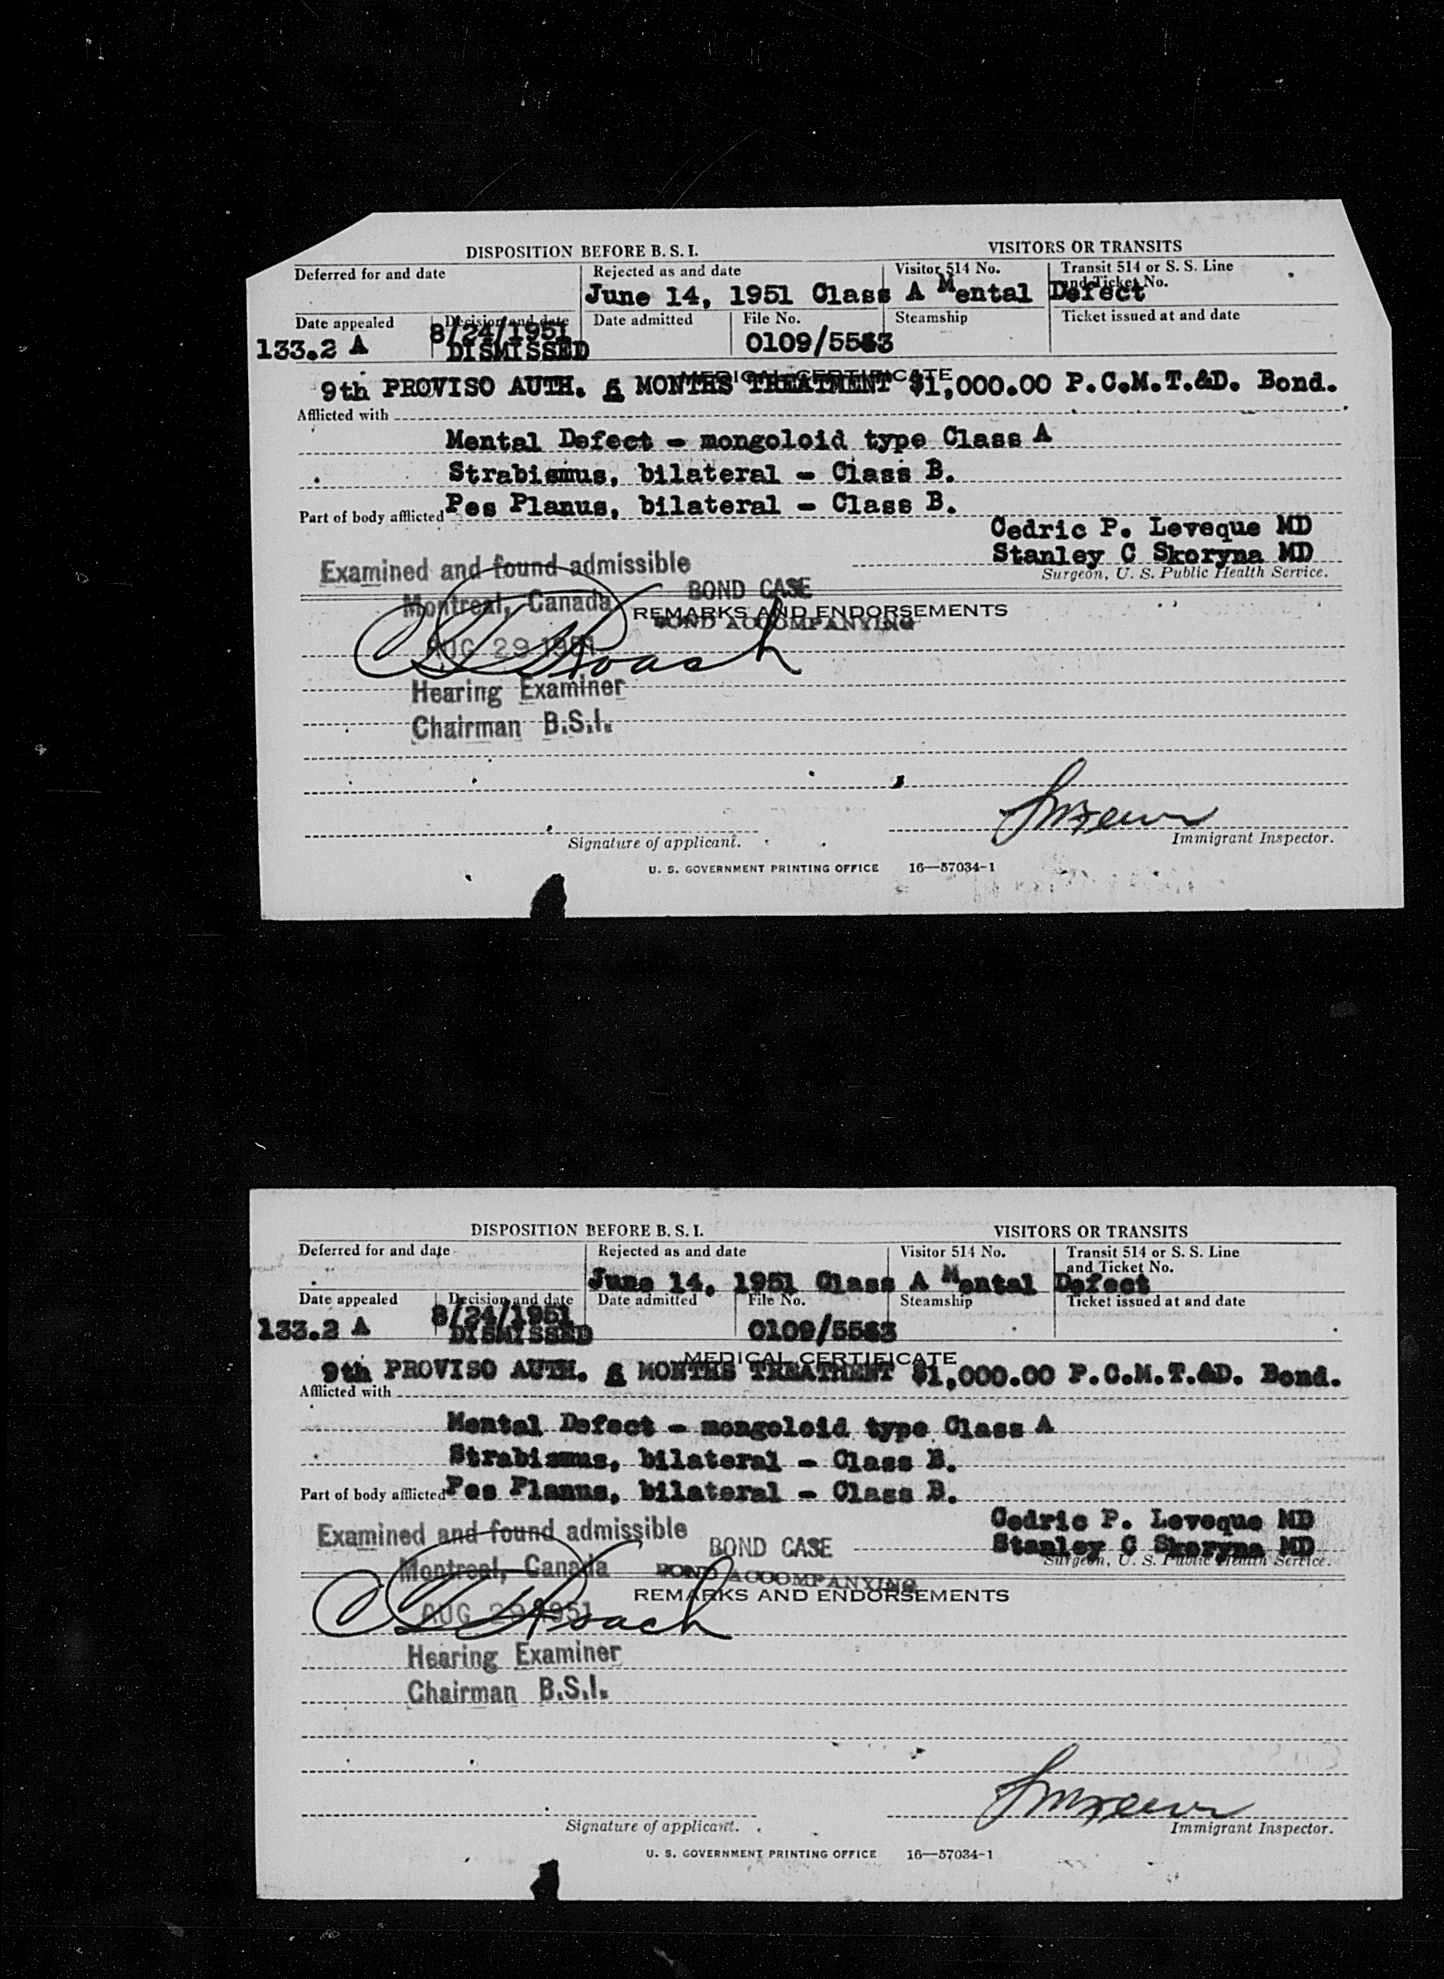 DISPOSITION BEFORE B. S. I. VISITORS OR TRANSITS
Deferred for and date Rejected as and date Visitor 514 No. Transit 514 or S. S. Line
and Ticket No.
June 14, 1951 Class A Mental Defect
Date appealed Decision and date Date admitted File No. Steamship Ticket issued at and date
133.2 A 8/24/1951 0109/55
DISMISSED
MEDICAL CERTIFICATE
9th PROVISO AUTH. 6 MONTHS TREATMENT $1,000.00 P.C.M.T.&D. Bond.
Afflicted with
Mental Defect - mongoloid type Class A
Strabismus, bilateral - Class B.
Part of body afflicted Pes Planus, bilateral - Class B.
Cedric P. Leveque MD
Stanley C Skoryna MD
Surgeon, U. S. Public Health Service.
Examined and found admissible
Montreal, Canada BOND CASE
REMARKS AND ENDORSEMENTS
BOND ACCOMPANYING
AUG 29 1951
Roach
Hearing Examiner
Chairman B.S.I.
Signature of applicant. Immigrant Inspector.
U. S. GOVERNMENT PRINTING OFFICE 16—57034-1
DISPOSITION BEFORE B. S. I. VISITORS OR TRANSITS
Deferred for and date Rejected as and date Visitor 514 No. Transit 514 or S. S. Line
and Ticket No.
June 14, 1951 Class A Mental Defect
Date appealed Decision and date Date admitted File No. Steamship Ticket issued at and date
133.2 A 8/24/1951 0109/55
DISMISSED
MEDICAL CERTIFICATE
9th PROVISO AUTH. 6 MONTHS TREATMENT $1,000.00 P.C.M.T.&D. Bond.
Afflicted with
Mental Defect - mongoloid type Class A
Strabismus, bilateral - Class B.
Part of body afflicted Pes Planus, bilateral - Class B.
Cedric P. Leveque MD
Stanley C Skoryna MD
Surgeon, U. S. Public Health Service.
Examined and found admissible
BOND CASE
Montreal, Canada
BOND ACCOMPANYING
REMARKS AND ENDORSEMENTS
AUG 29 1951
Roach
Hearing Examiner
Chairman B.S.I.
Signature of applicant. Immigrant Inspector.
U. S. GOVERNMENT PRINTING OFFICE 16—57034-1